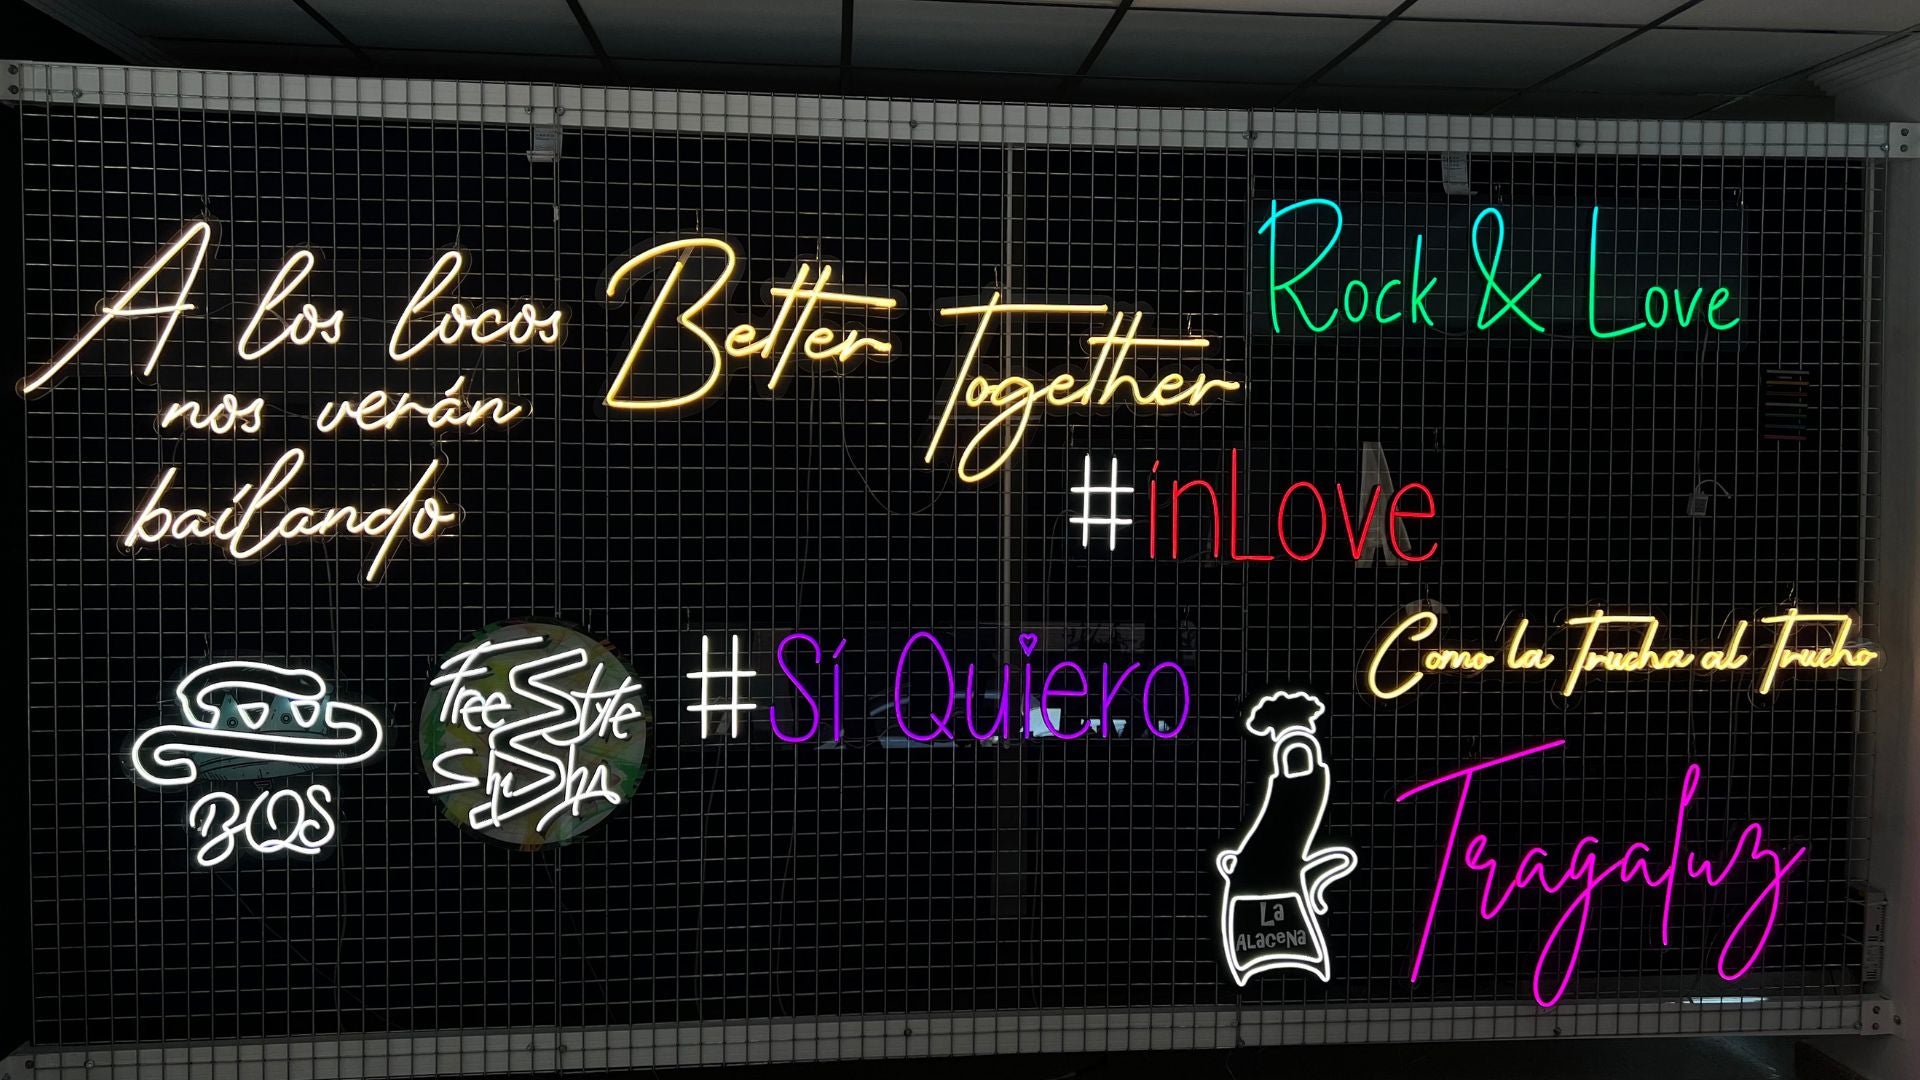 A los locos
nos verán
bailando
Better
Together
Rock & Love
#inLove
Como la Trucha al Trucho
#Sí Quiero
FreeStyle
ShiSha
BQS
La
ALaceNa
Tragaluz